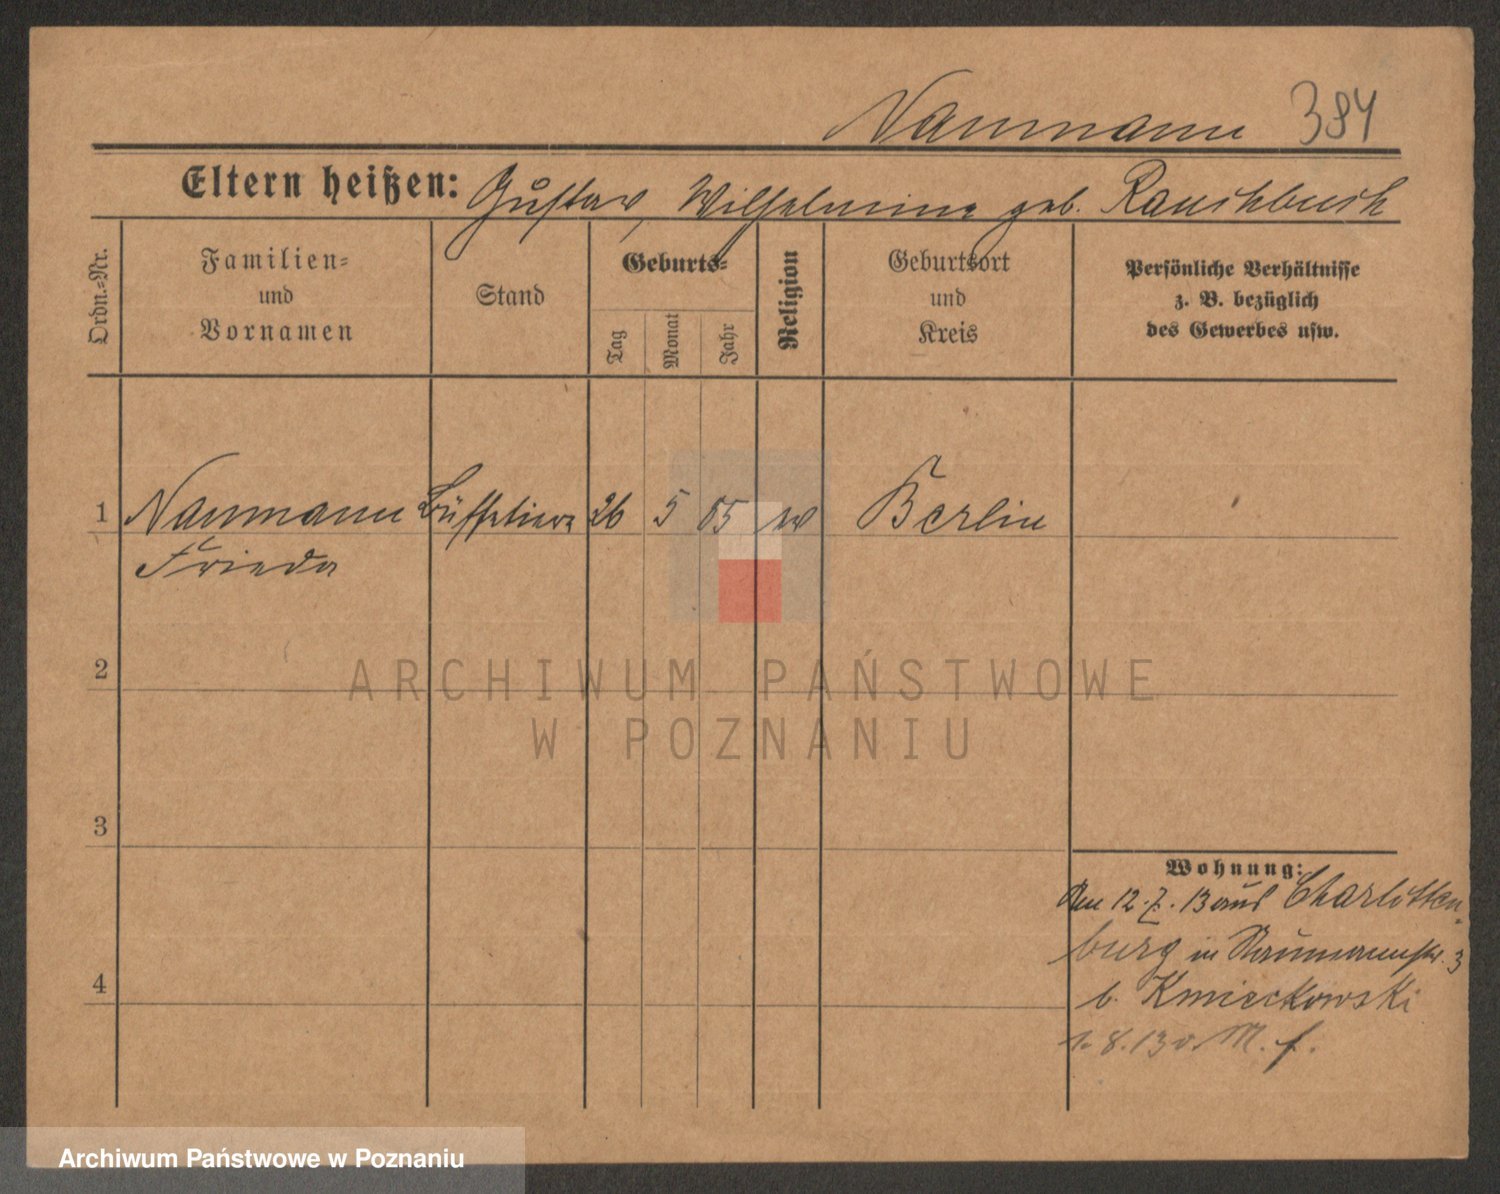 Naumann 384
Eltern heißen: Gustav, Wilhelmine geb. Rauschbusch
Ordn.-Nr.
Familien-
und
Vornamen
Stand
Geburts-
Tag
Monat
Jahr
Religion
Geburtsort
und
Kreis
Persönliche Verhältnisse
z. B. bezüglich
des Gewerbes usw.
1 Naumann 26 5 Berlin
Frieda
2
3
4
Wohnung:
12. 7. 13 aus Charlotten-
burg in Naumannstr. 3
b. Kmieckowski
1. 8. 13 v. M. f.
ARCHIWUM PAŃSTWOWE
W POZNANIU
Archiwum Państwowe w Poznaniu